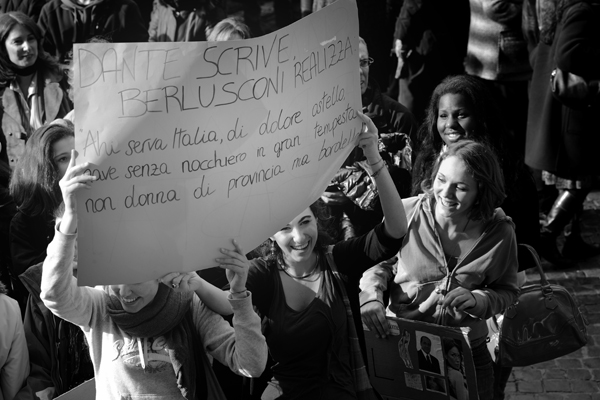 DANTE SCRIVE,
BERLUSCONI REALIZZA
"Ahi serva Italia, di dolore ostello,
nave senza nocchiero in gran tempesta,
non donna di provincia ma bordello"